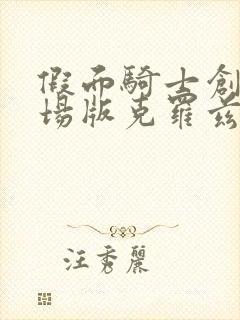 假面騎士創
場版克羅茲
汪秀麗